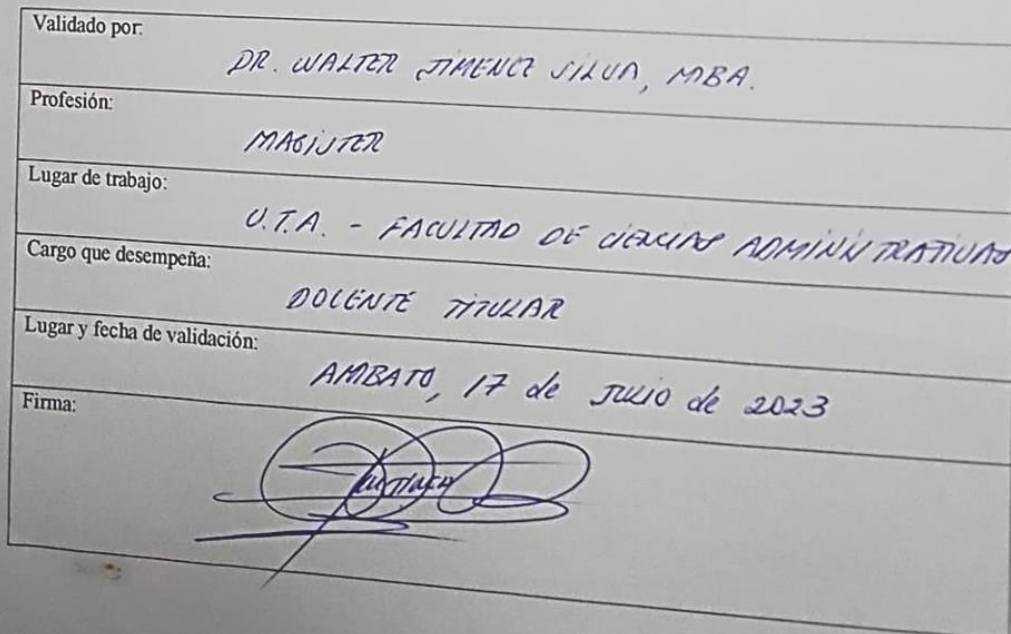 Validado por:
DR. WALTER JIMENEZ SILVA, MBA.
Profesión:
MAGISTER
Lugar de trabajo:
U.T.A. - FACULTAD DE CIENCIAS ADMINISTRATIVAS
Cargo que desempeña:
DOCENTE TITULAR
Lugar y fecha de validación:
AMBATO, 17 de JULIO de 2023
Firma: